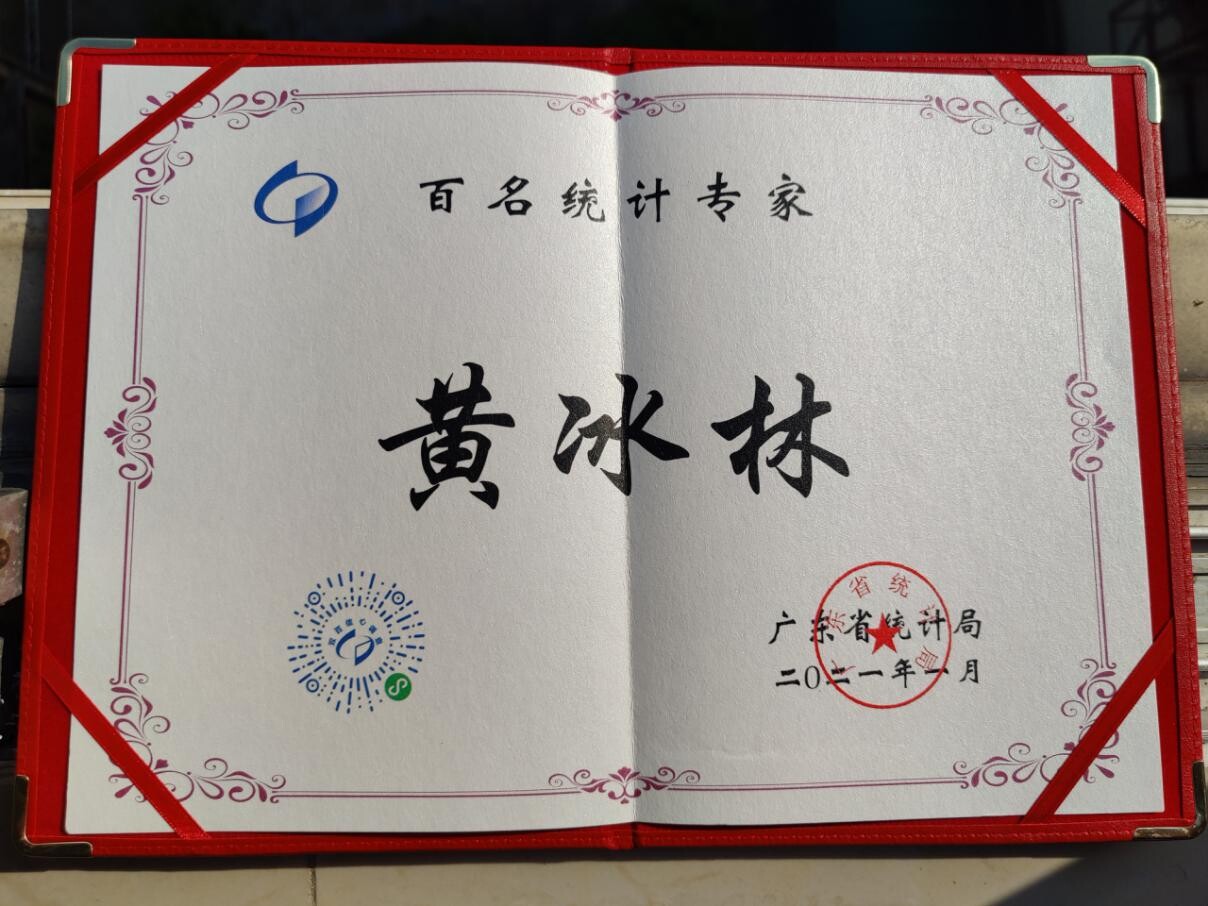 百名统计专家
黄冰林
广东省统计局
二〇二一年一月
东省统计局